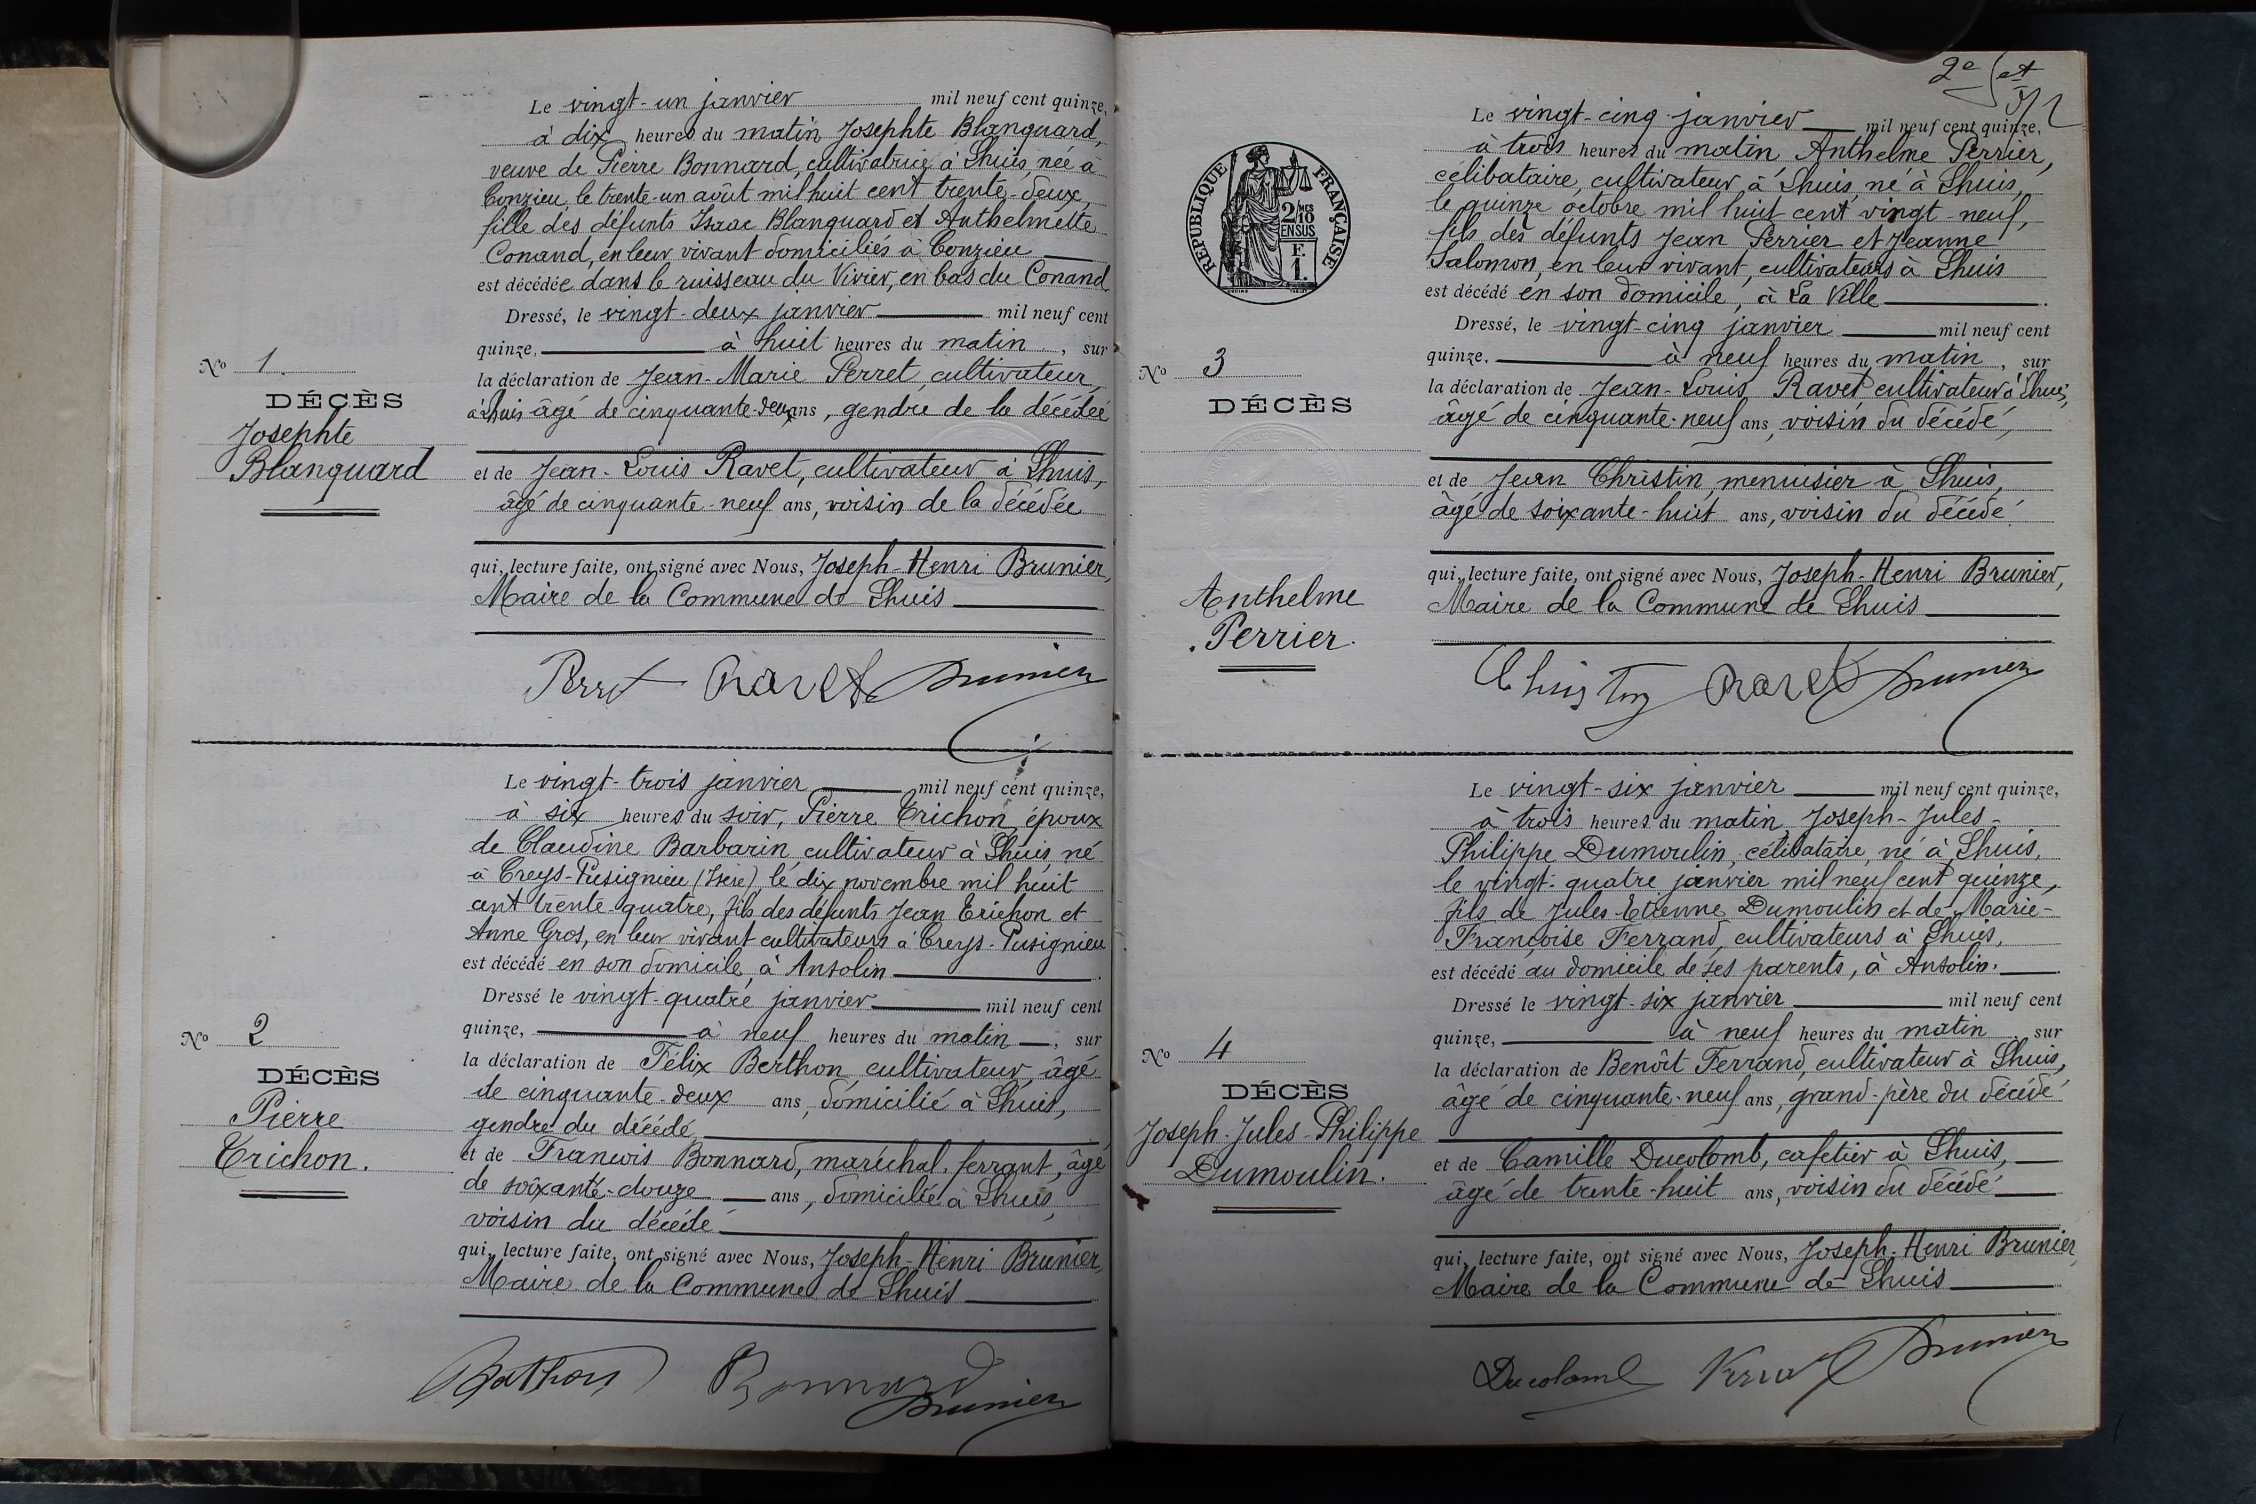 Le vingt-un janvier mil neuf cent quinze,
à dix heures du matin Josephte Blanquard,
veuve de Pierre Bonnard, cultivatrice à Lhuis, née à
Conzieu, le trente-un août mil huit cent trente-deux,
fille des défunts Isaac Blanquard et Anthelmette
Conand, en leur vivant domiciliés à Conzieu
est décédée dans le ruisseau du Vivier, en bas du Conand
Dressé, le vingt-deux janvier mil neuf cent
quinze, à huit heures du matin, sur
la déclaration de Jean-Marie Perret, cultivateur,
à Lhuis âgé de cinquante-deux ans, gendre de la décédée
et de Jean-Louis Ravet, cultivateur à Lhuis,
âgé de cinquante-neuf ans, voisin de la décédée
qui, lecture faite, ont signé avec Nous, Joseph-Henri Brunier,
Maire de la Commune de Lhuis
Perret Ravet Brunier
No 1.
DÉCÈS
Josephte
Blanquard
Le vingt-trois janvier mil neuf cent quinze,
à six heures du soir, Pierre Trichon, époux
de Claudine Barbarin, cultivateur à Lhuis, né
à Creys-Pusignieu (Isère), le dix novembre mil huit
cent trente-quatre, fils des défunts Jean Trichon et
Anne Gros, en leur vivant cultivateurs à Creys-Pusignieu
est décédé en son domicile, à Ansolin
Dressé le vingt-quatre janvier mil neuf cent
quinze, à neuf heures du matin, sur
la déclaration de Félix Berthon, cultivateur, âgé
de cinquante-deux ans, domicilié à Lhuis,
gendre du décédé,
et de Francois Bonnard, maréchal-ferrant, âgé
de soixante-douze ans, domicilié à Lhuis,
voisin du décédé
qui, lecture faite, ont signé avec Nous, Joseph-Henri Brunier,
Maire de la Commune de Lhuis
Berthon Bonnard
Brunier
No 2
DÉCÈS
Pierre
Trichon.
2e
RÉPUBLIQUE FRANÇAISE
2/10 MES
EN SUS
F.
1.
Le vingt-cinq janvier mil neuf cent quinze,
à trois heures du matin, Anthelme Perrier,
célibataire, cultivateur à Lhuis, né à Lhuis,
le quinze octobre mil huit cent vingt-neuf,
fils des défunts Jean Perrier et Jeanne
Salomon, en leur vivant, cultivateurs à Lhuis
est décédé en son domicile, à La Ville
Dressé, le vingt-cinq janvier mil neuf cent
quinze, à neuf heures du matin, sur
la déclaration de Jean-Louis Ravet cultivateur à Lhuis,
âgé de cinquante-neuf ans, voisin du décédé,
et de Jean Christin, menuisier à Lhuis,
âgé de soixante-huit ans, voisin du décédé.
qui, lecture faite, ont signé avec Nous, Joseph-Henri Brunier,
Maire de la Commune de Lhuis
Christin Ravet Brunier
No 3
DÉCÈS
Anthelme
Perrier.
Le vingt-six janvier mil neuf cent quinze,
à trois heures du matin, Joseph-Jules-
Philippe Dumoulin, célibataire, né à Lhuis,
le vingt-quatre janvier mil neuf cent quinze,
fils de Jules Etienne Dumoulin et de Marie-
Françoise Ferrand, cultivateurs à Lhuis,
est décédé au domicile de ses parents, à Ansolin.
Dressé le vingt-six janvier mil neuf cent
quinze, à neuf heures du matin sur
la déclaration de Benoît Ferrand, cultivateur à Lhuis,
âgé de cinquante-neuf ans, grand-père du décédé
et de Camille Ducolomb, cafetier à Lhuis,
âgé de trente-huit ans, voisin du décédé
qui, lecture faite, ont signé avec Nous, Joseph-Henri Brunier,
Maire de la Commune de Lhuis
Ducolomb Brunier
No 4
DÉCÈS
Joseph-Jules-Philippe
Dumoulin.